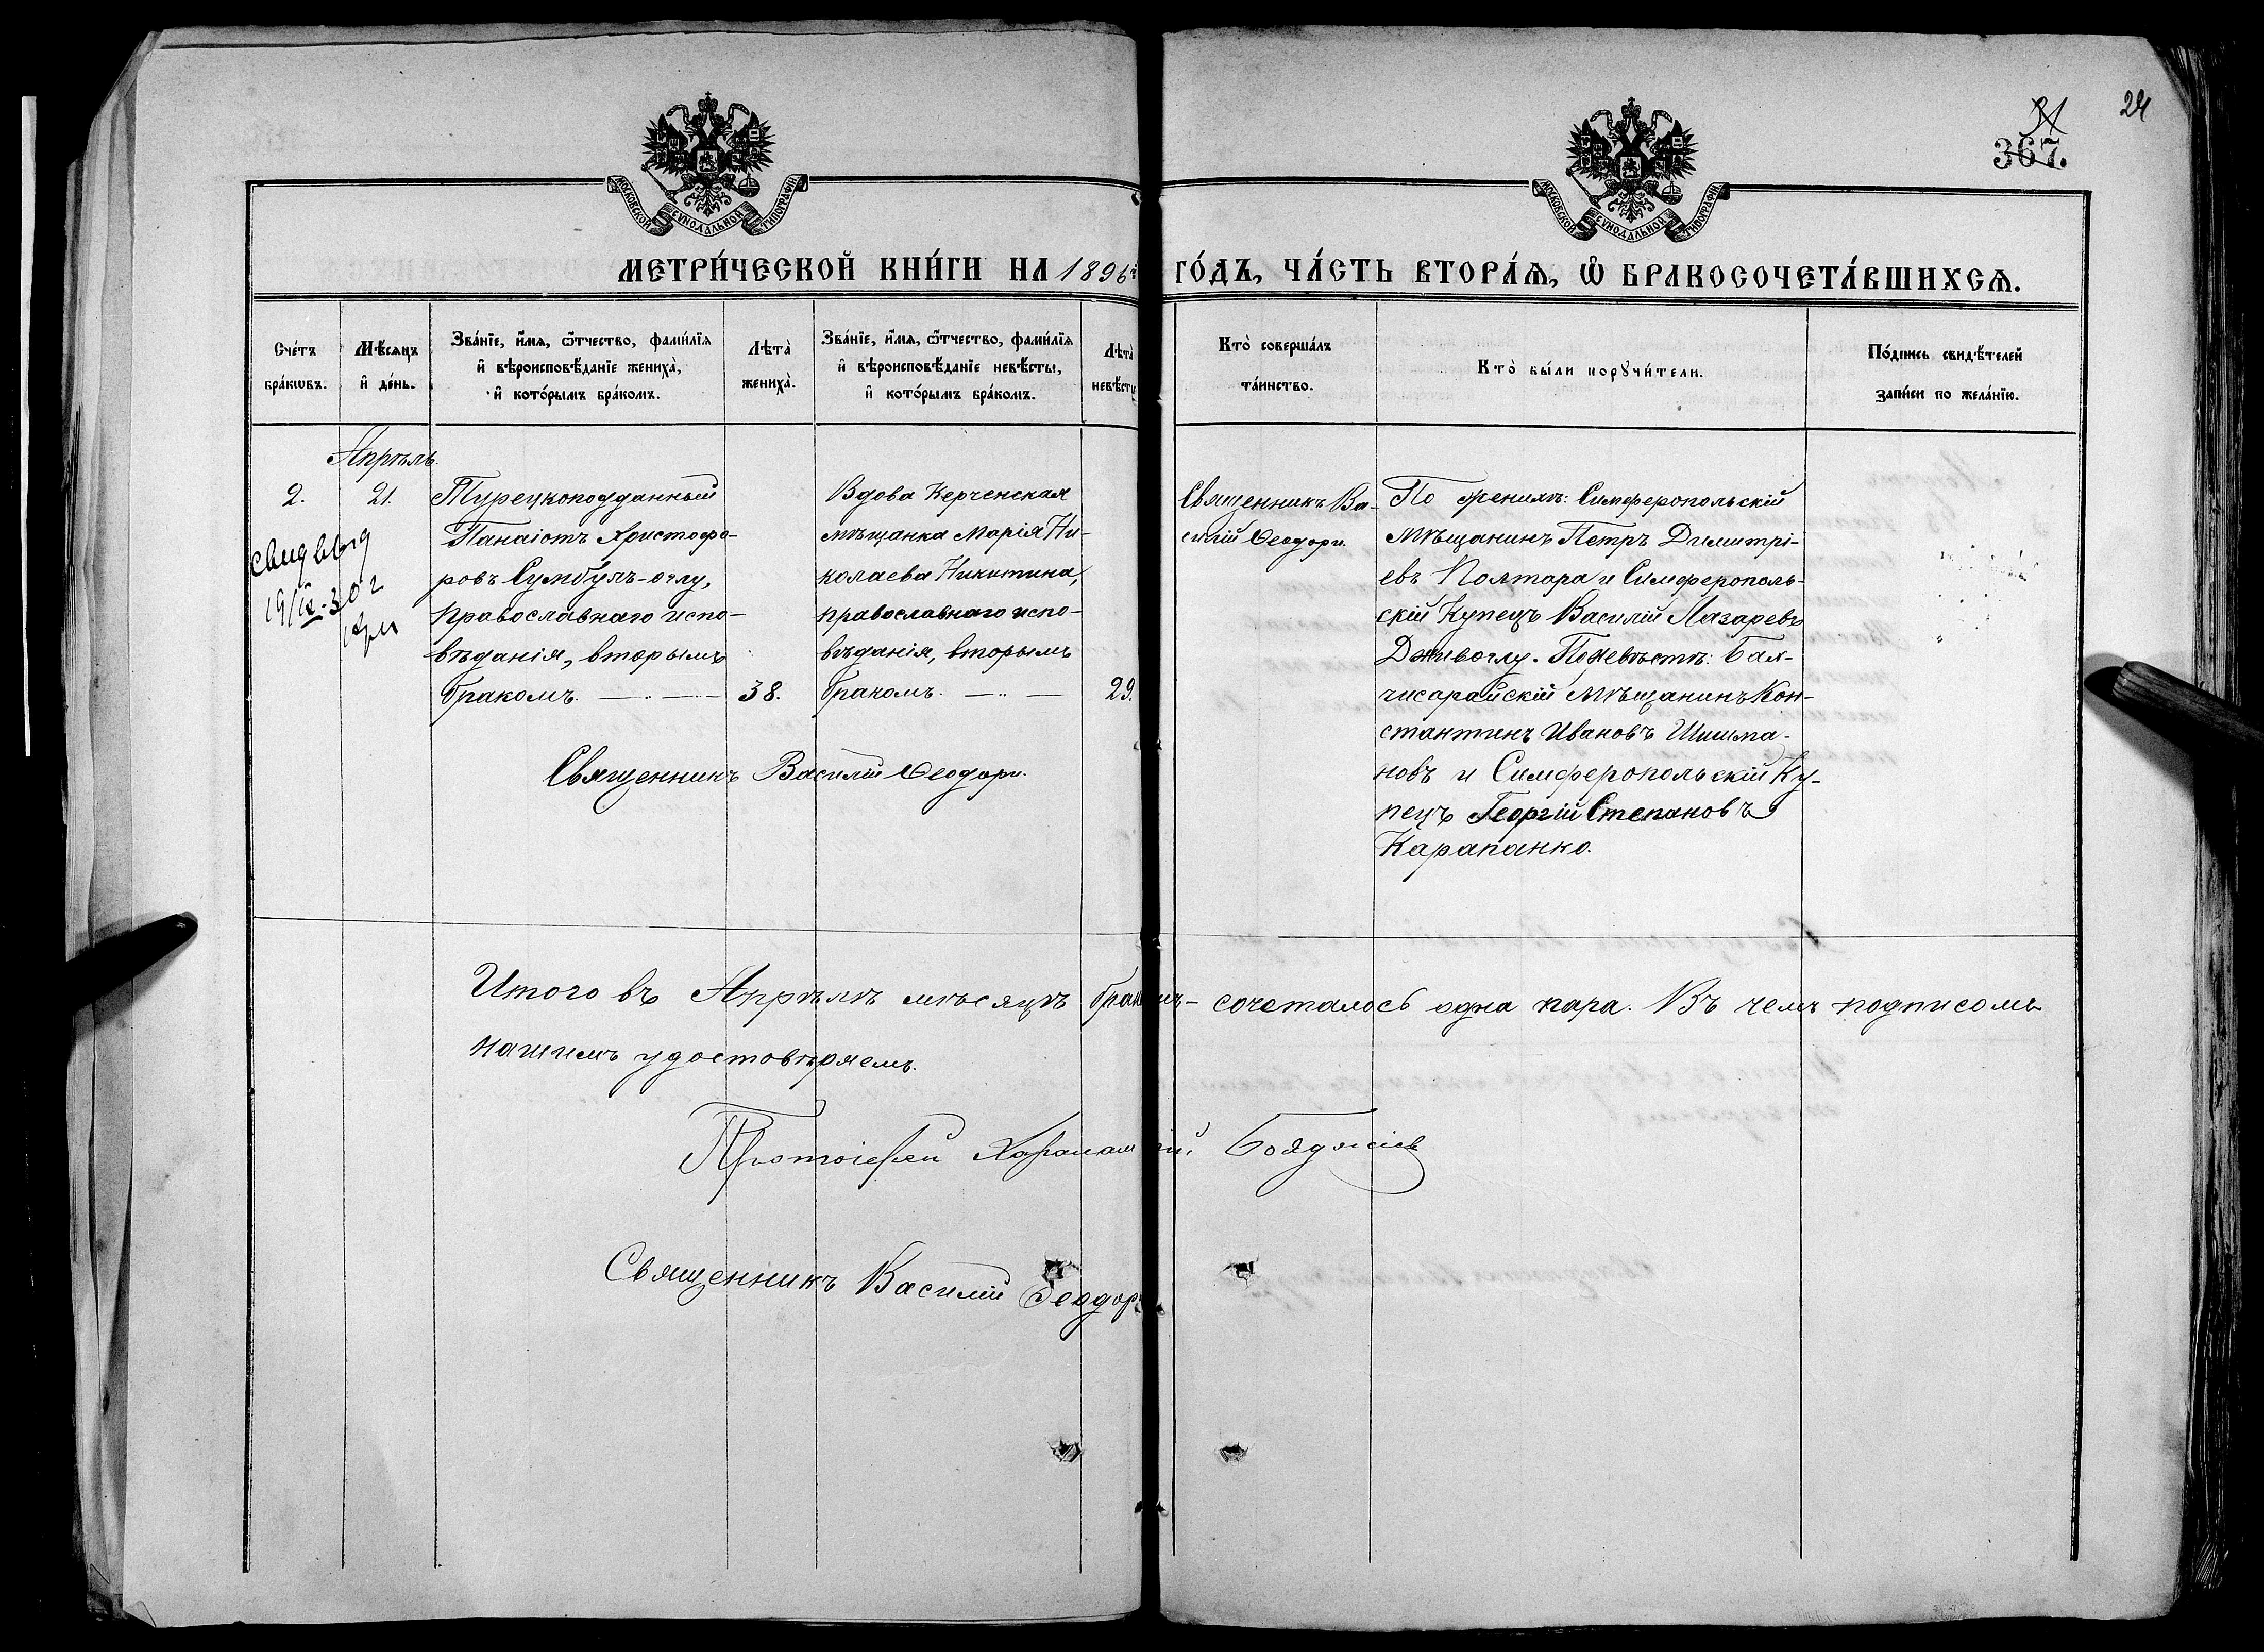 24
31
367.
МОСКОВСКОЙ СѴНОДАЛЬНОЙ ТИПОГРАФІИ
МОСКОВСКОЙ СѴНОДАЛЬНОЙ ТИПОГРАФІИ
МЕТРИ́ЧЕСКОЙ КНИ́ГИ НА 1896й ГО́ДЪ, ЧА́СТЬ ВТОРА́Ѧ, Ѡ҆ БРАКОСОЧЕТА́ВШИХСѦ.
Сче́тъ
бра́кѡвъ.
Мѣ́сѧцъ
и҆ де́нь.
Зва́нїе, и҆́мѧ, ѻ҆́тчество, фами́лїѧ
и҆ вѣроисповѣ́данїе жениха̀,
и҆ кото́рымъ бра́комъ.
Лѣта̀
жениха̀.
Зва́нїе, и҆́мѧ, ѻ҆́тчество, фами́лїѧ
и҆ вѣроисповѣ́данїе невѣ́сты,
и҆ кото́рымъ бра́комъ.
Лѣта̀
невѣ́сты
Кто̀ соверша́лъ
та́инство.
Кто̀ бы́ли порꙋчи́тели.
По́дпись свидѣ́телей
за́писи по жела́нїю.
Апрѣль.
2.
21.
Турецкоподданный
Панаіотъ Христофо-
ровъ Сумбулъ-оглу,
православнаго испо-
вѣданія, вторымъ
бракомъ.
38.
Вдова Керченская
мѣщанка Марія Ни-
колаева Никитина,
православнаго испо-
вѣданія, вторымъ
бракомъ.
29.
19/IX-30 г
Священникъ Василій Ѳеодори.
Священникъ Ва-
силій Ѳеодори.
По женихѣ: Симферопольскій
мѣщанинъ Петръ Димитрі-
евъ Полтара и Симферополь-
скій Купецъ Василій Лазаревъ
Дживоглу. По невѣстѣ: Бах-
чисарайскій мѣщанинъ Кон-
стантинъ Ивановъ Шишма-
новъ и Симферопольскій Ку-
пецъ Георгій Степановъ
Карапанко.
Итого въ Апрѣлѣ мѣсяцѣ бракомъ-сочеталось одна пара. Въ чемъ подписомъ
нашимъ удостовѣряемъ.
Протоіерей Харалампій Бояджіевъ
Священникъ Василій Ѳеодори